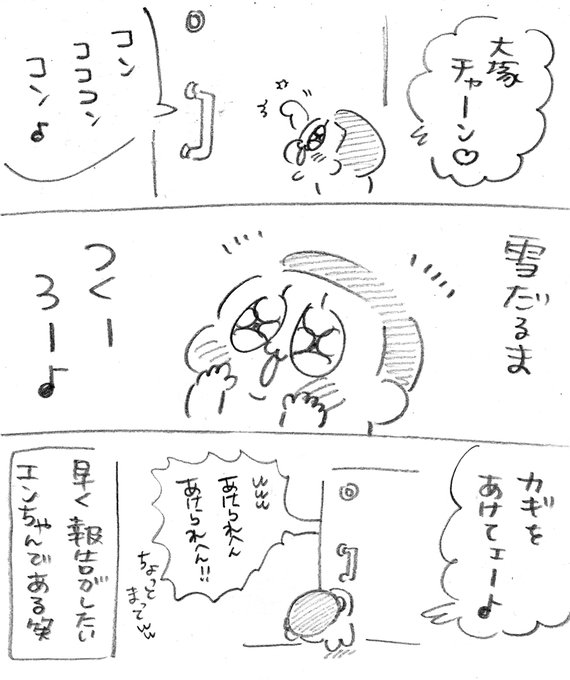 大塚
チャーン♡
コン
コココン
コン♪
雪だるま
つくー
ろーよ♪
カギを
あけてェー♪
www
あけられへん
あけられへん!!
ちょっと
まってww
早く報告がしたい
エンちゃんである笑